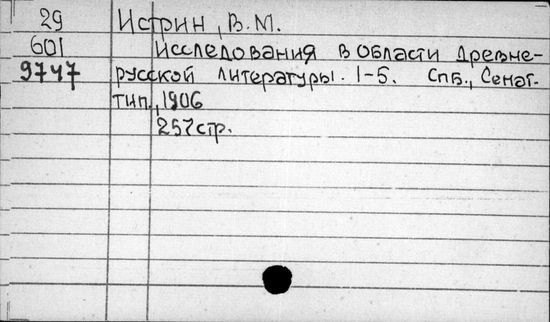 29 Истрин, В.М.
601 Исследования в области древне-
9747 русской литературы. 1-5. Спб., Сенат.
тип., 1906
257стр.